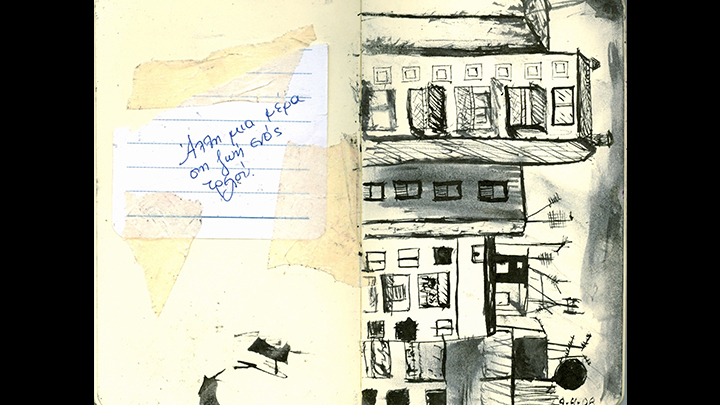 Άλλη μια μέρα
στη ζωή ενός
τρελού.